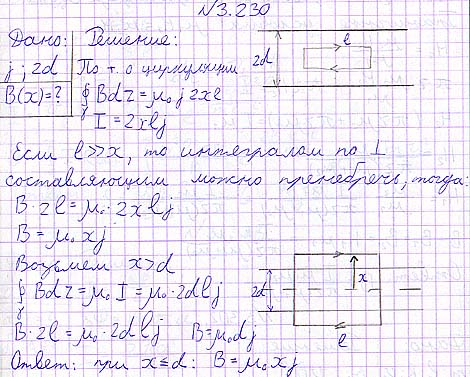 №3.230
Дано: Решение:
j ; 2d По т. о циркуляции
B(x)=? ∮ Bdr = μ₀ j 2xl
γ
I = 2xlj
2d l
Если l≫x, то интегралом по ⊥
составляющим можно пренебречь, тогда:
B·2l = μ₀·2xlj
B = μ₀xj
Возьмем x>d
∮ Bdr = μ₀ I = μ₀·2dlj
γ
B·2l = μ₀·2dlj B=μ₀dj
2d x
l
Ответ: при x≤d: B = μ₀xj